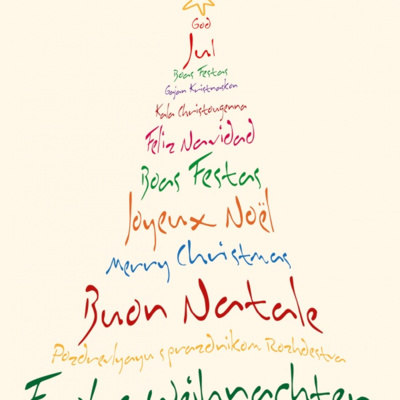 God
Jul
Boas Festas
Gajan Kristnaskon
Kala Christougenna
Feliz Navidad
Boas Festas
Joyeux Noël
Merry Christmas
Buon Natale
Pozdrevlyayu s prazdnikom Rozhdestva
Weihnachten